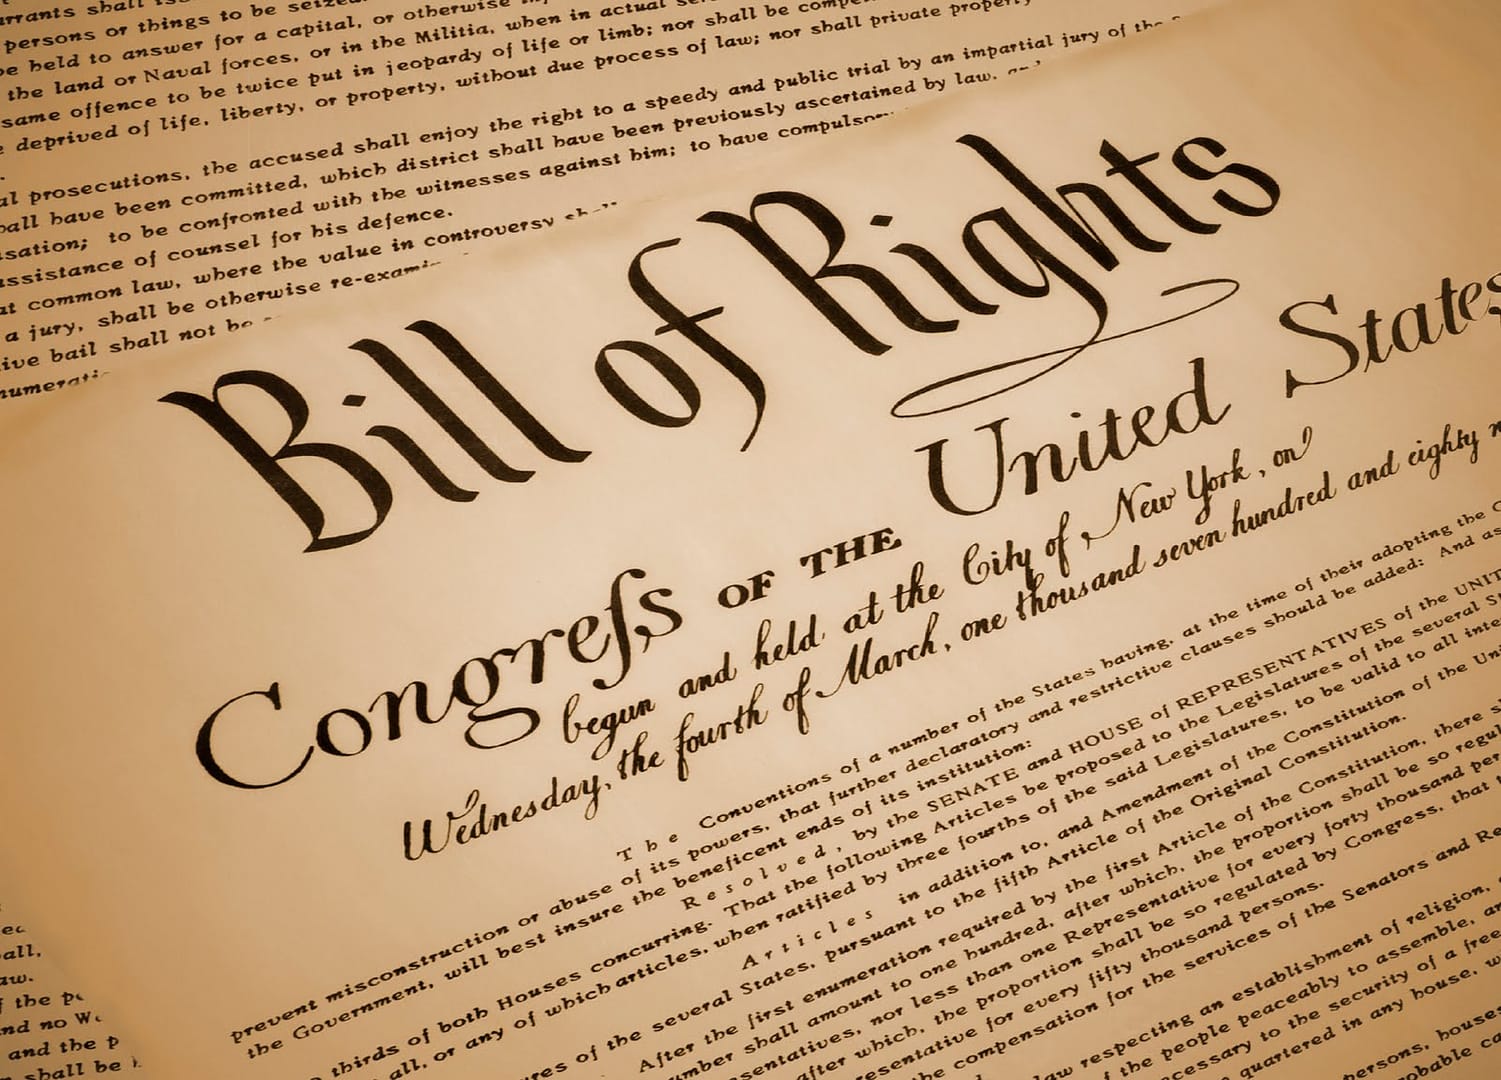 arrants shall
persons or things to be seized
be held to answer for a capital, or otherwise
the land or Naval forces, or in the Militia, when in actual
same offence to be twice put in jeopardy of life or limb; nor shall be
deprived of life, liberty, or property, without due process of law; nor shall private property
al prosecutions, the accused shall enjoy the right to a speedy and public trial by an impartial jury of the
hall have been committed, which district shall have been previously ascertained by law, and
usation; to be confronted with the witnesses against him; to have compulsory
assistance of counsel for his defence.
at common law, where the value in controversy shall
a jury, shall be otherwise re-exami
ive bail shall not be
numerati
Bill of Rights
Congreſs OF THE United States
begun and held at the City of New York, on
Wednesday, the fourth of March, one thousand seven hundred and eighty n
The Conventions of a number of the States having, at the time of their adopting the C
prevent misconstruction or abuse of its powers, that further declaratory and restrictive clauses should be added: And as
the Government, will best insure the beneficent ends of its institution:
Resolved, by the SENATE and HOUSE of REPRESENTATIVES of the UNIT
thirds of both Houses concurring. That the following Articles be proposed to the Legislatures of the several St
all, or any of which articles, when ratified by three fourths of the said Legislatures, to be valid to all inte
Articles in addition to, and Amendment of the Constitution of the Uni
res of the several States, pursuant to the fifth Article of the Original Constitution.
After the first enumeration required by the first Article of the Constitution, there s
mber shall amount to one hundred, after which, the proportion shall be so regul
sentatives, nor less than one Representative for every forty thousand per
after which, the proportion shall be so regulated by Congress, that t
resentative for every fifty thousand persons.
the compensation for the services of the Senators and Re
law respecting an establishment of religion,
the people peaceably to assemble, an
cessary to the security of a free
quartered in any house, w
persons, houses
robable ca
all,
aw.
f the pe
nd no Wa
and the p
shall be